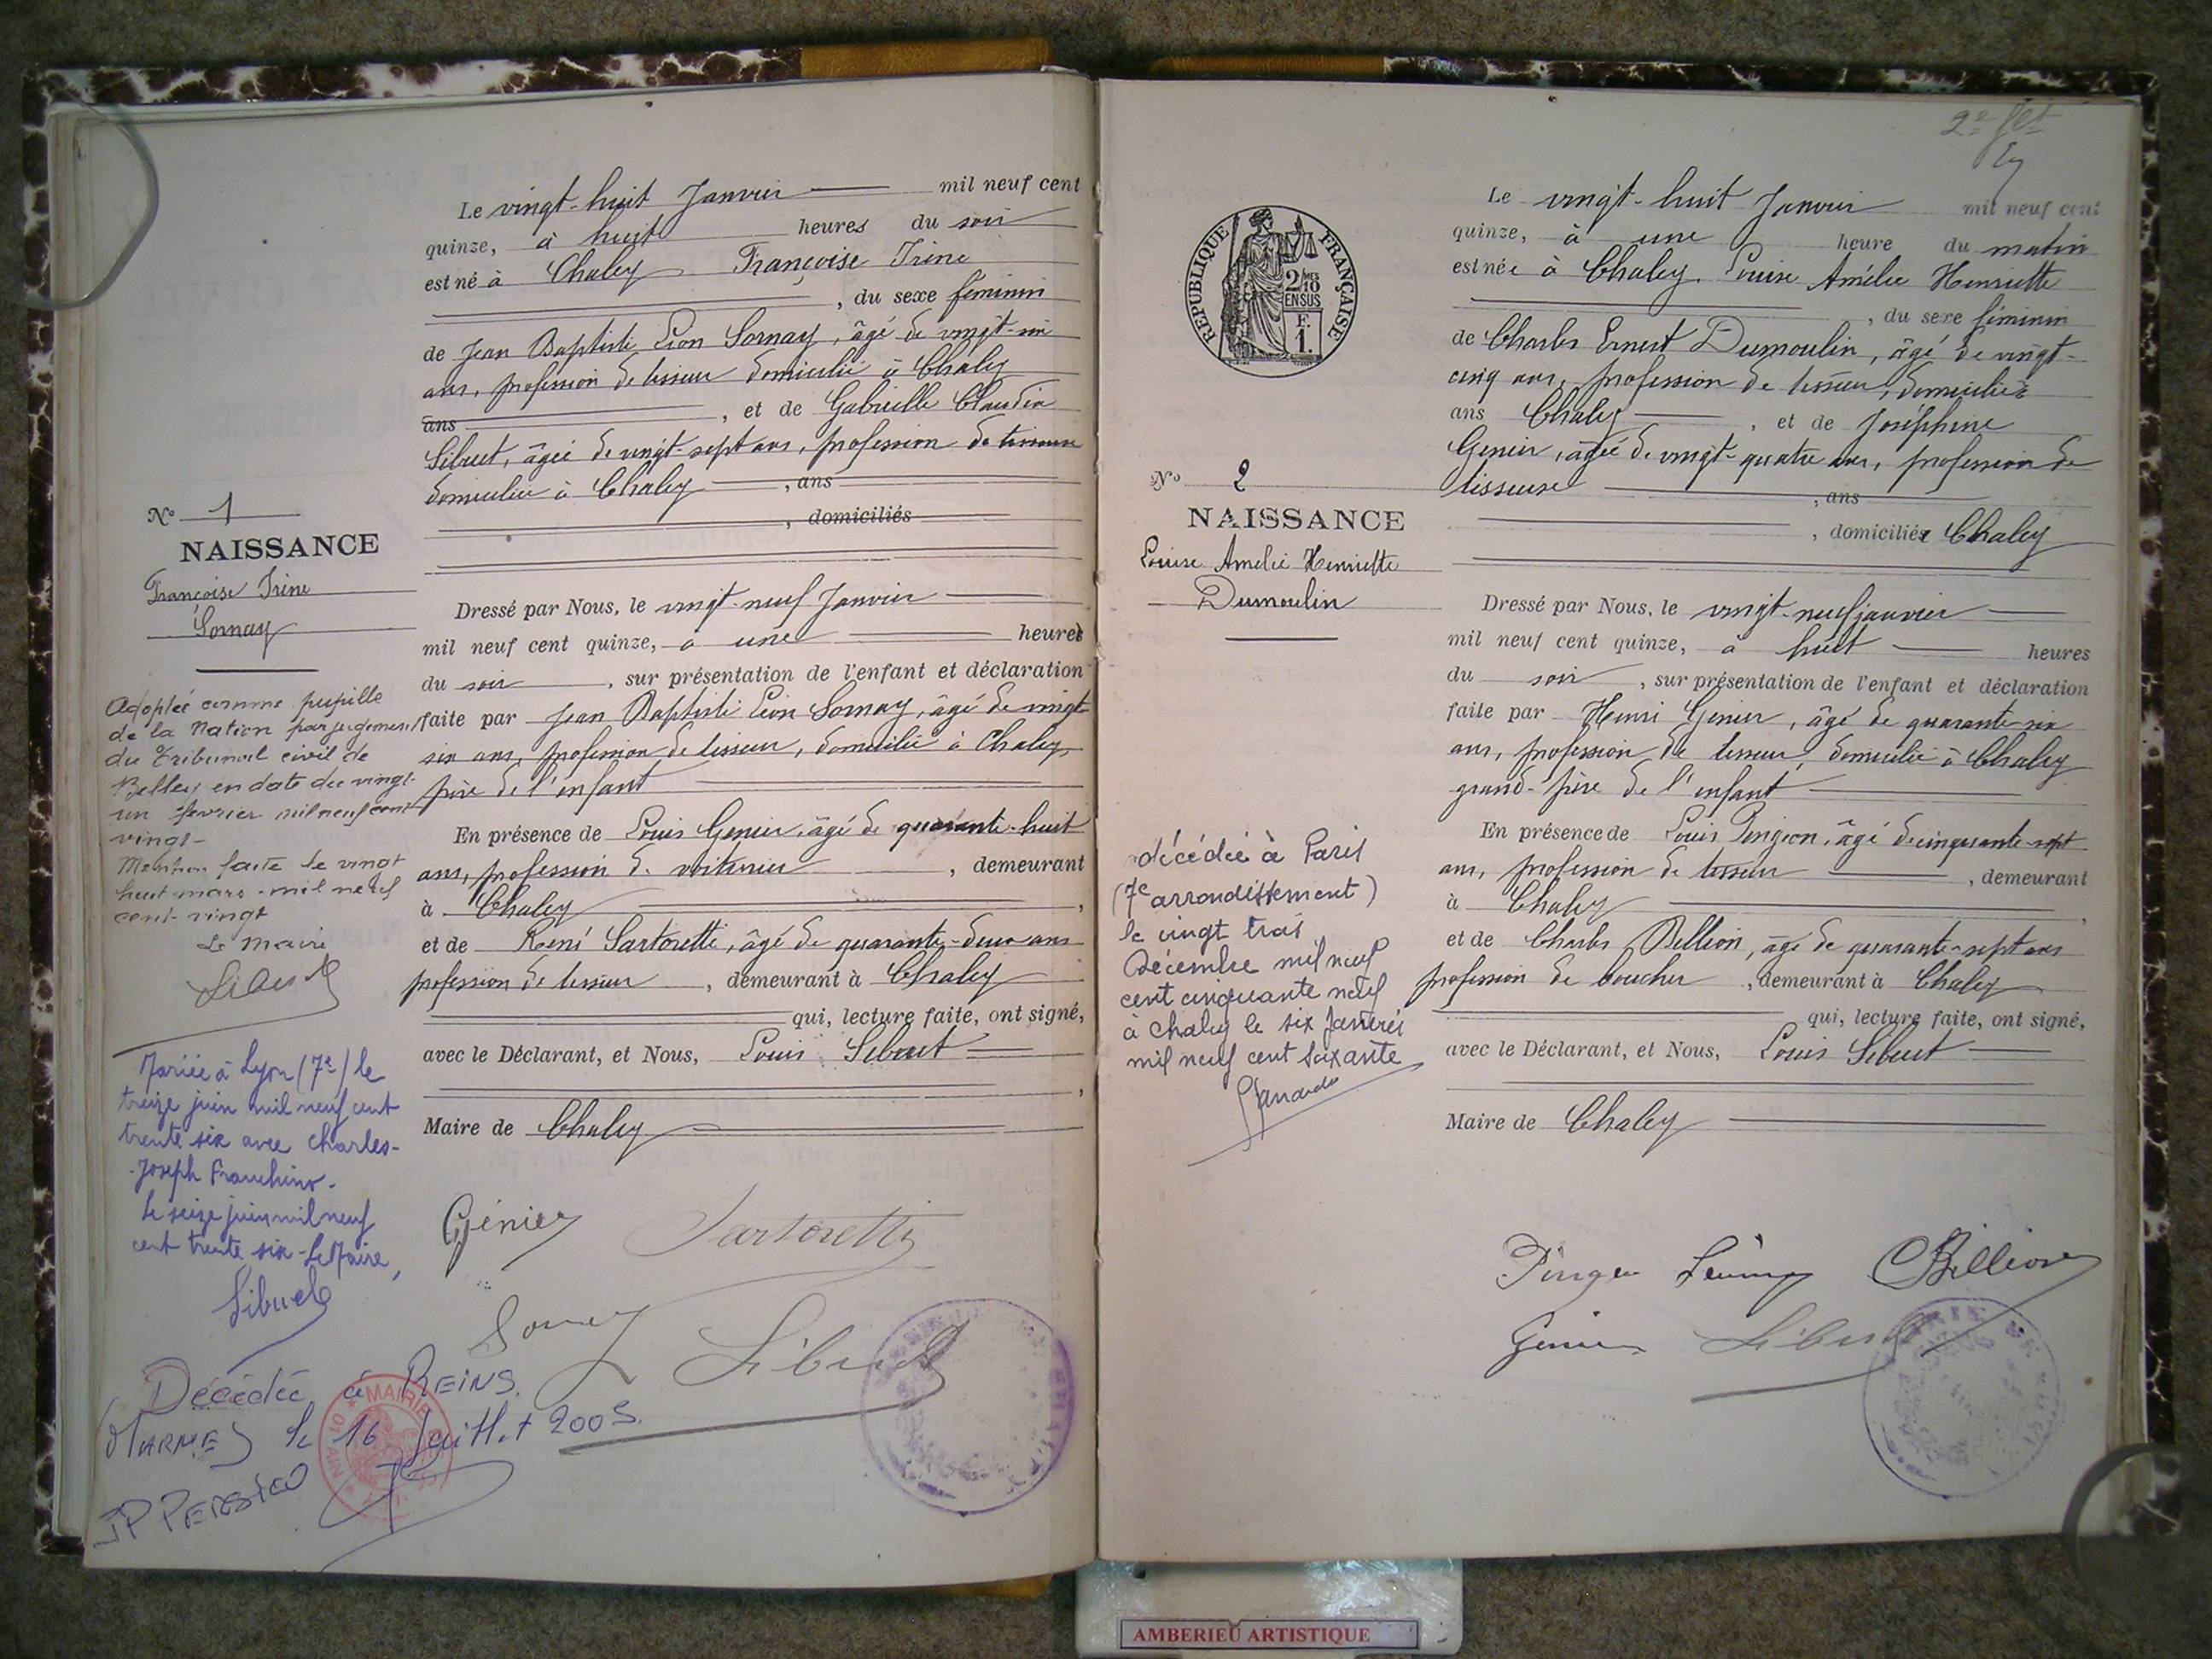 Le vingt-huit Janvier mil neuf cent
quinze, à huit heures du soir
est né à Chaley Françoise Irène
, du sexe féminin
de Jean Baptiste Léon Sornay, âgé de vingt-six
ans, profession de tisseur domicilié à Chaley
ans , et de Gabrielle Claudia
Sibuet, âgée de vingt-sept ans, profession de tisseuse
domiciliée à Chaley , ans
, domiciliés
N° 1
NAISSANCE
Françoise Irène
Sornay
Dressé par Nous, le vingt-neuf Janvier
mil neuf cent quinze, à une heures
du soir , sur présentation de l'enfant et déclaration
faite par Jean Baptiste Léon Sornay, âgé de vingt
six ans, profession de tisseur, domicilié à Chaley,
père de l'enfant
En présence de Louis Genier, âgé de quarante-huit
ans, profession de voiturier , demeurant
à Chaley ,
et de René Sartoretti, âgé de quarante-deux ans
profession de tisseur , demeurant à Chaley
qui, lecture faite, ont signé,
avec le Déclarant, et Nous, Louis Sibuet
,
Maire de Chaley
Génier Sartoretti
Sornay Sibuet
Adoptée comme pupille
de la Nation par jugement
du Tribunal civil de
Belley en date du vingt-
un février mil neuf cent
vingt-
Mention faite le vingt
huit mars mil neuf
cent-vingt
Le Maire
Sibuet
Mariée à Lyon (7e) le
treize juin mil neuf cent
trente six avec Charles-
-Joseph Franchino-
Le seize juin mil neuf
cent trente six - Le Maire,
Sibuet
Décédée à REINS.
(MARNE) le 16 Juillet 2005.
JP PERSICO
MAIRIE
AIN 01
2e flet
Le vingt-huit Janvier mil neuf cent
quinze, à une heure du matin
est née à Chaley. Louise Amélie Henriette
, du sexe féminin
de Charles Ernest Dumoulin, âgé de vingt-
cinq ans, profession de tisseur, domicilié à
ans Chaley , et de Joséphine
Genier, âgée de vingt-quatre ans, profession de
tisseuse , ans
, domiciliée Chaley
REPUBLIQUE FRANÇAISE
2/10 MES
EN SUS
F.
1.
N° 2
NAISSANCE
Louise Amélie Henriette
Dumoulin
Dressé par Nous, le vingt-neuf janvier
mil neuf cent quinze, à huit heures
du soir , sur présentation de l'enfant et déclaration
faite par Henri Genier, âgé de quarante-six
ans, profession de tisseur, domicilié à Chaley
grand-père de l'enfant
En présence de Louis Pingeon, âgé de cinquante-sept
ans, profession de tisseur , demeurant
à Chaley ,
et de Charles Billion, âgé de quarante-sept ans
profession de boucher , demeurant à Chaley
qui, lecture faite, ont signé,
avec le Déclarant, et Nous, Louis Sibuet
Maire de Chaley
décédée à Paris
(7e arrondissement)
le vingt trois
Décembre mil neuf
cent cinquante neuf
à Chaley le six Janvier
mil neuf cent soixante
Billion
Genier Sibuet
AMBERIEU ARTISTIQUE